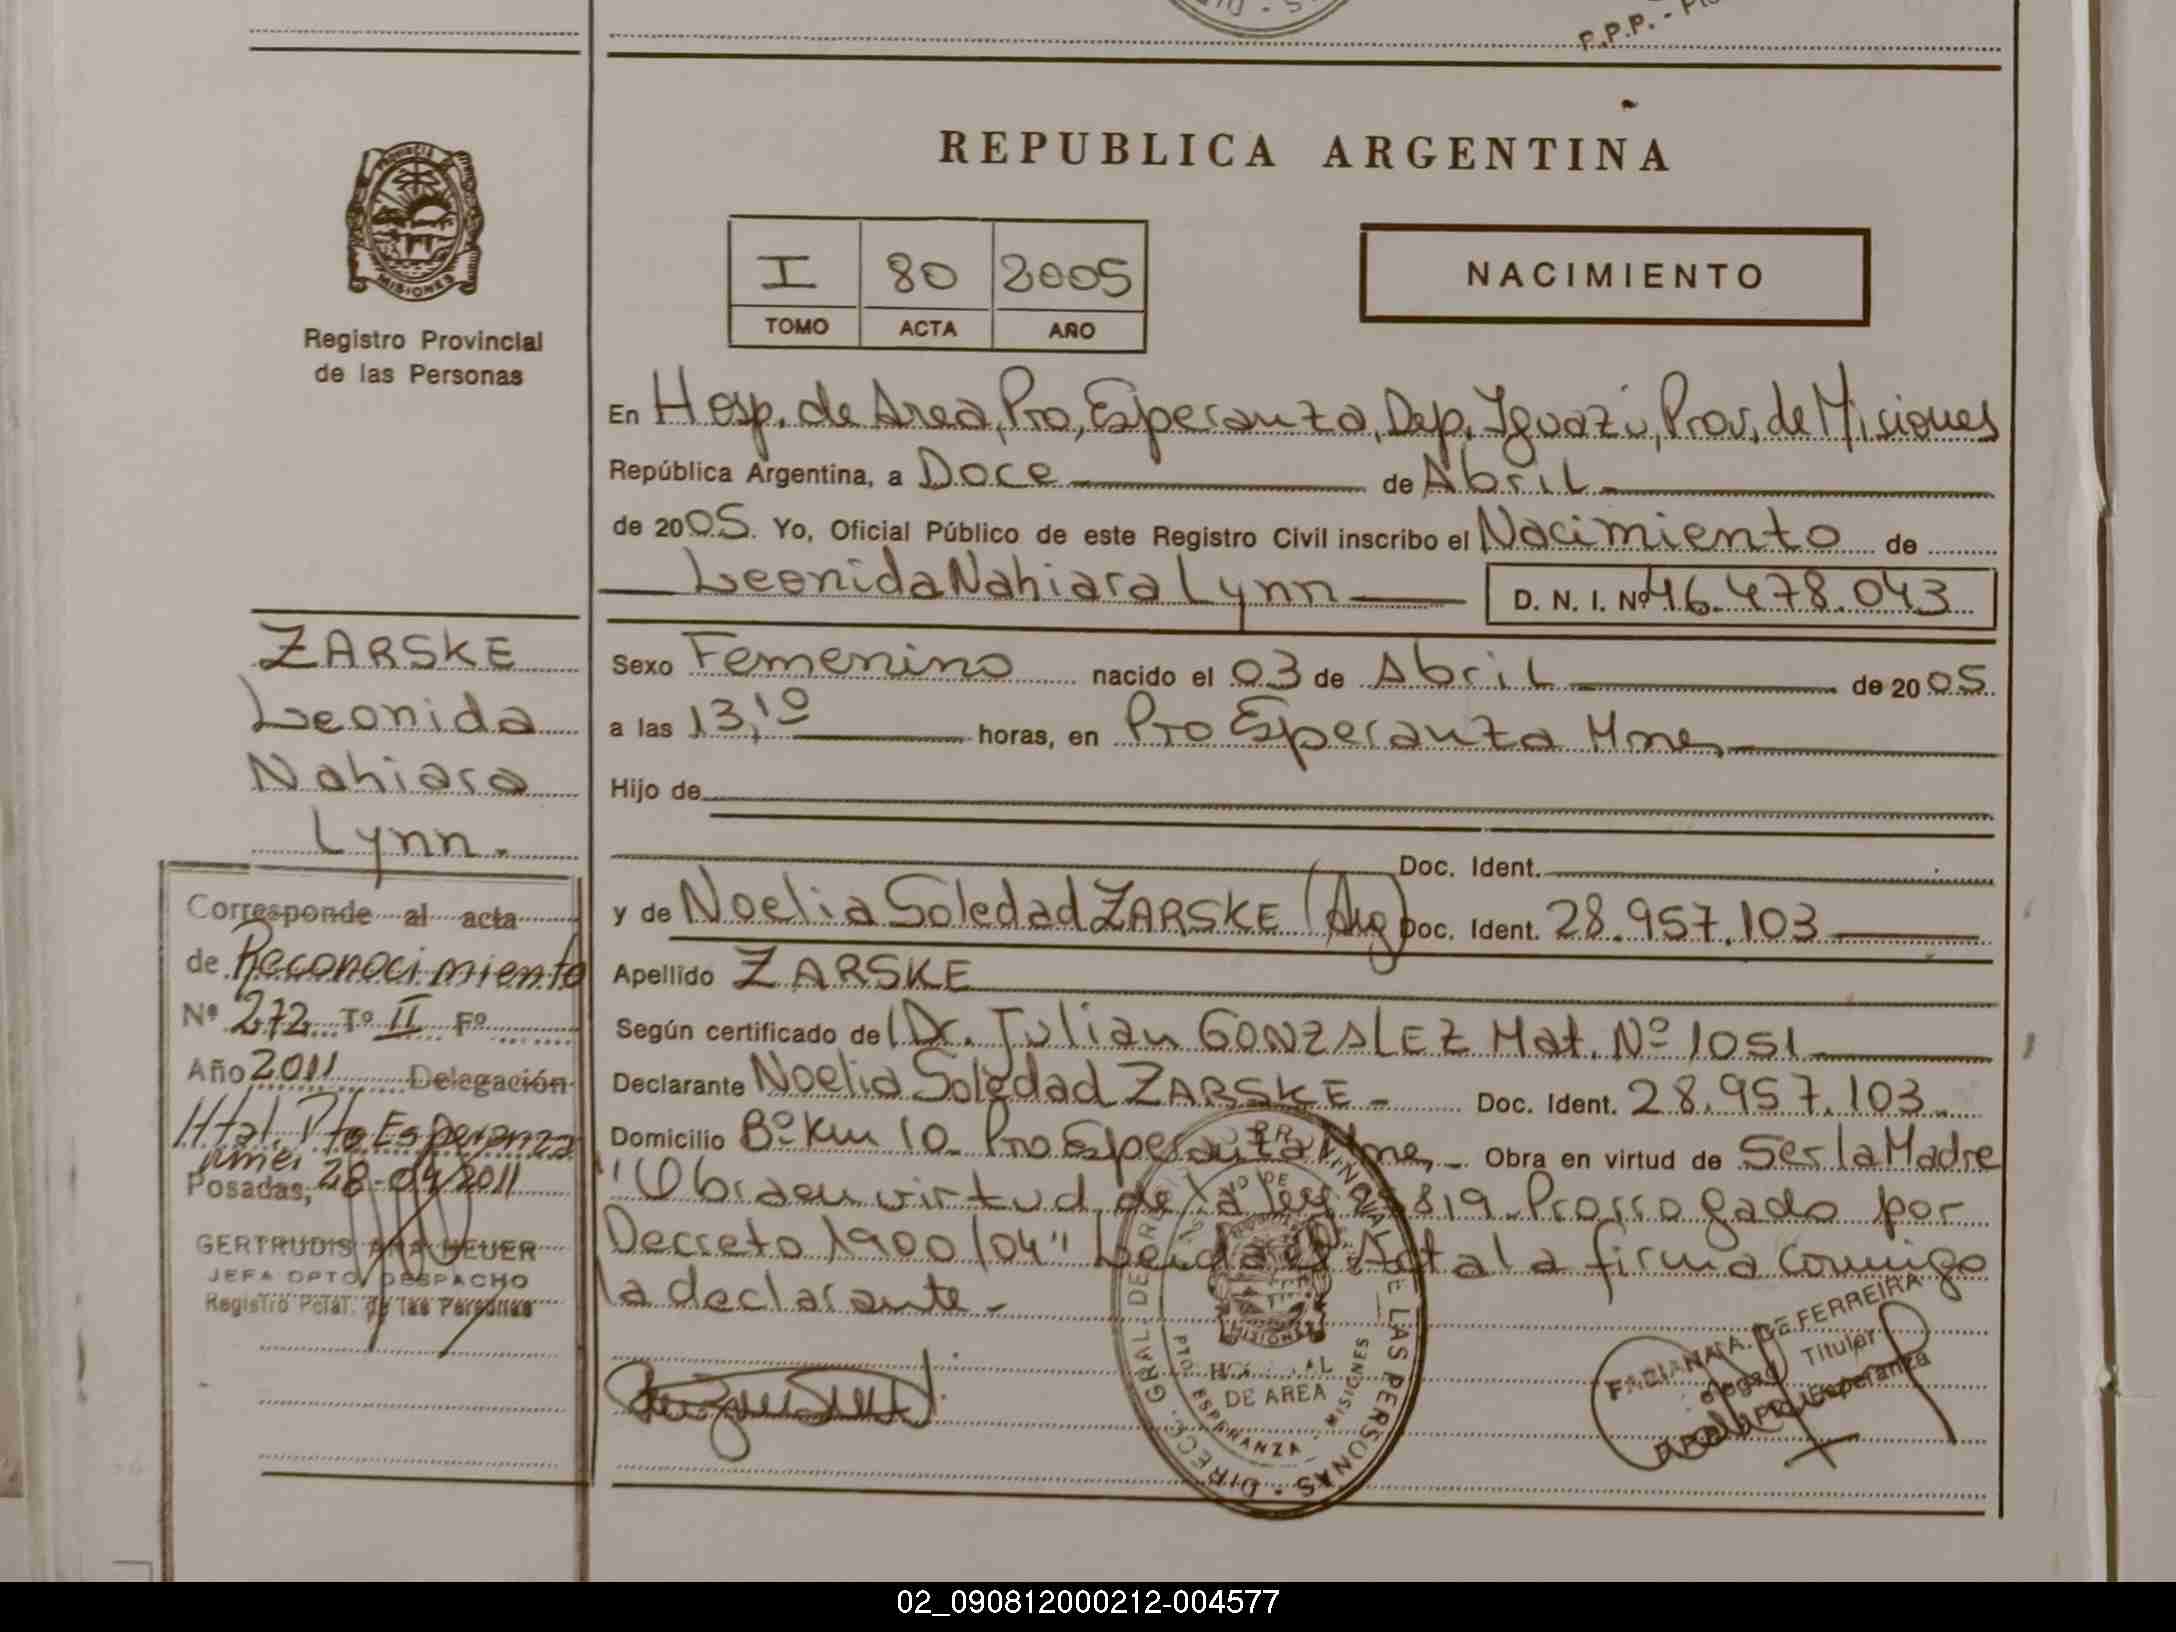 P.P.P. -
REPUBLICA ARGENTINA
PROVINCIA DE
MISIONES
Registro Provincial
de las Personas
I 80 2005
TOMO ACTA AÑO
NACIMIENTO
En Hosp. de Area, Pto, Esperanza, Dep. Iguazú, Prov. de Misiones
República Argentina, a Doce de Abril
de 2005. Yo, Oficial Público de este Registro Civil inscribo el Nacimiento de
Leonida Nahiara Lynn D. N. I. Nº 46.478.043
Sexo Femenino nacido el 03 de Abril de 2005
a las 13,10 horas, en Pto Esperanza Mnes
Hijo de
Doc. Ident.
y de Noelia Soledad ZARSKE (Arg) Doc. Ident. 28.957.103
Apellido ZARSKE
Según certificado de Dr. Julian GONZALEZ Mat. Nº 1051
Declarante Noelia Soledad ZARSKE - Doc. Ident. 28.957.103
Domicilio Bº Km 10 - Pto Esperanza Mnes - Obra en virtud de Ser la Madre
"Obra en virtud de la ley 25819 - Prorrogado por
Decreto 1900/04" Leida el Acta la firma conmigo
la declarante -
ZARSKE
Leonida
Nahiara
Lynn.
Corresponde al acta
de Reconocimiento
Nº 272 Tº II Fº
Año 2011 Delegación
Htal. Pto Esperanza
Mnes
Posadas, 28-04-2011
GERTRUDIS ANA HEUER
JEFA DPTO. DESPACHO
Registro Pcial. de las Personas
DIRECC. GRAL. DE REG. PROVINCIAL DE LAS PERSONAS
MISIONES
HOSPITAL
DE AREA
PTO. ESPERANZA - MISIONES
FABIANA A. DE FERREIRA
Titular
Esperanza
02_090812000212-004577